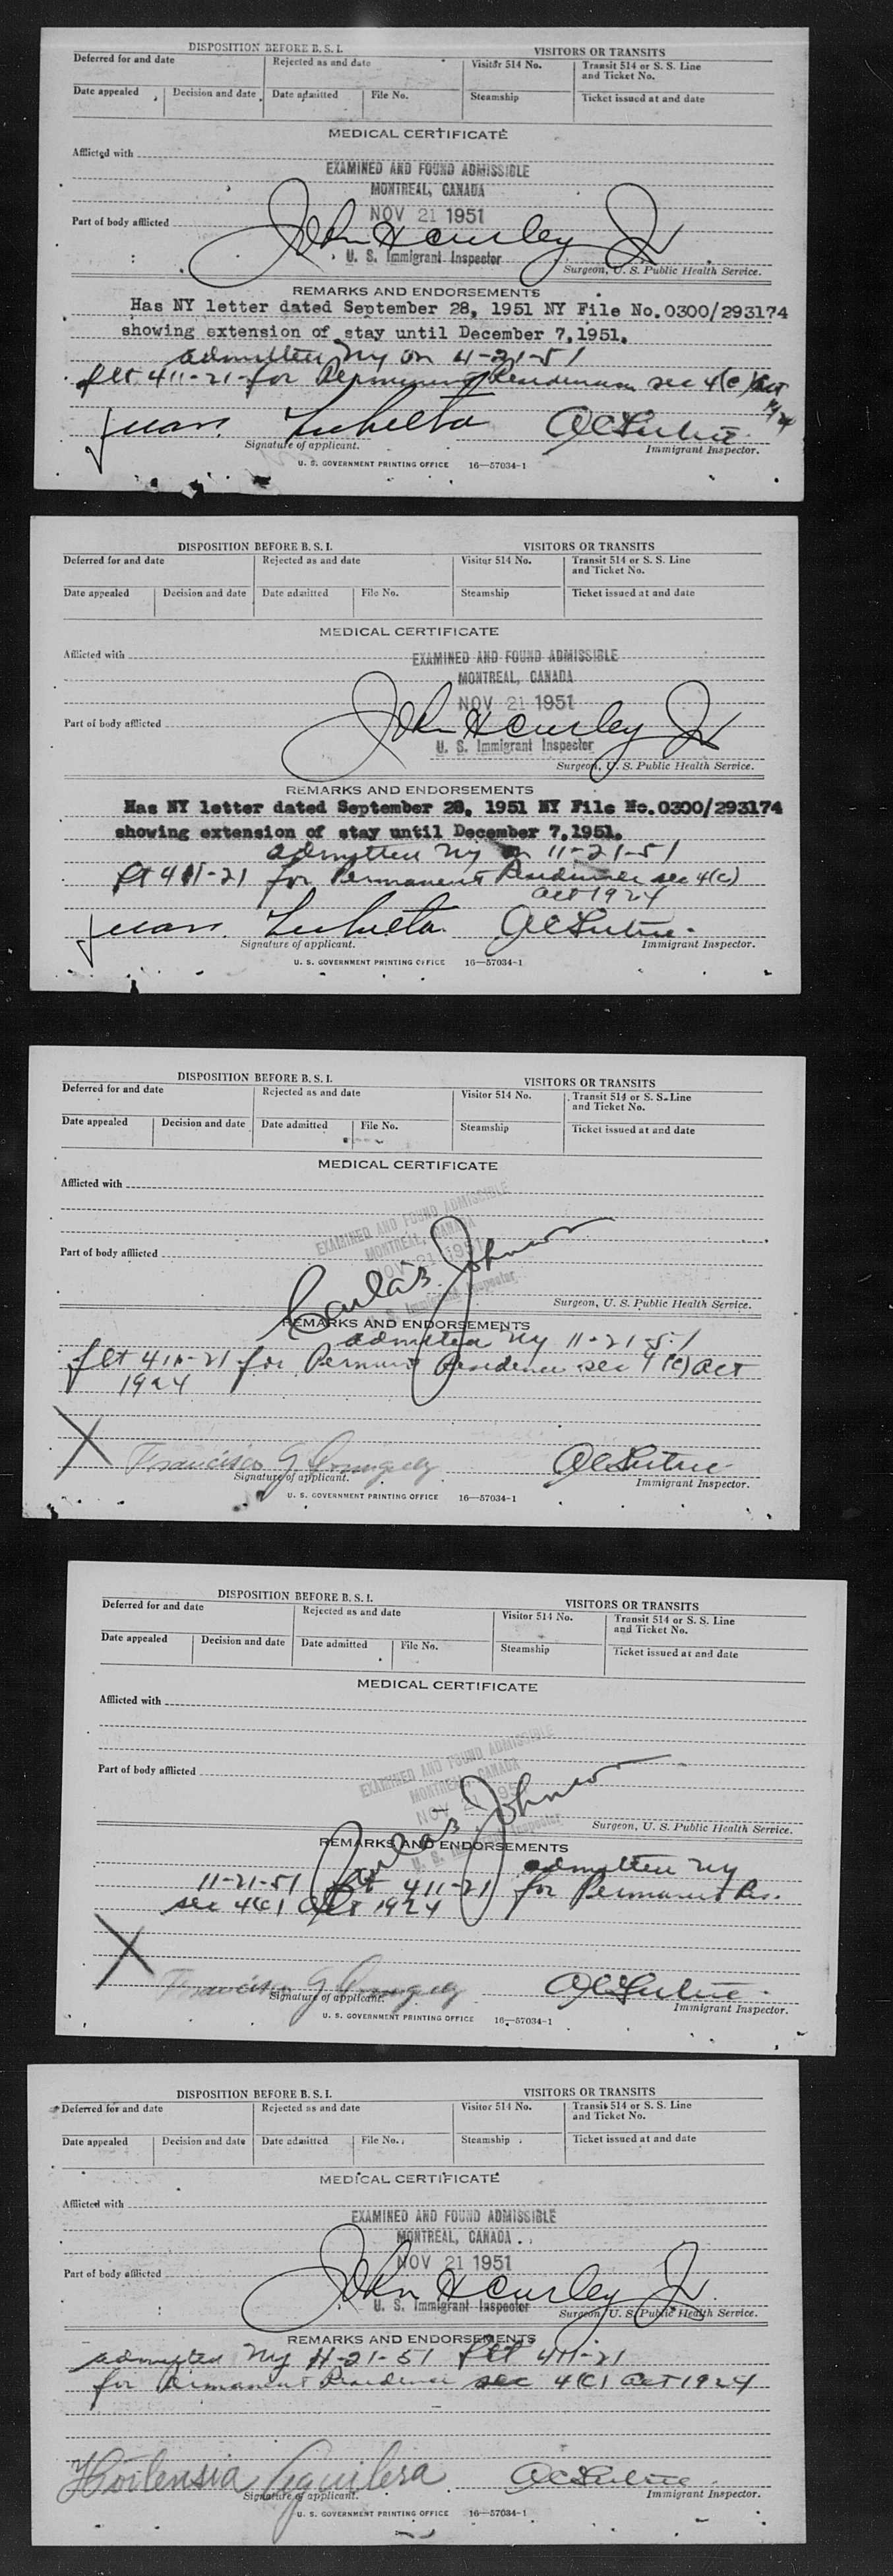 DISPOSITION BEFORE B. S. I.
VISITORS OR TRANSITS
Deferred for and date
Rejected as and date
Visitor 514 No.
Transit 514 or S. S. Line
and Ticket No.
Date appealed
Decision and date
Date admitted
File No.
Steamship
Ticket issued at and date
MEDICAL CERTIFICATE
Afflicted with
EXAMINED AND FOUND ADMISSIBLE
MONTREAL, CANADA
NOV 21 1951
Part of body afflicted
John H Curley Jr
U. S. Immigrant Inspector
Surgeon, U. S. Public Health Service.
REMARKS AND ENDORSEMENTS
Has NY letter dated September 28, 1951 NY File No.0300/293174
showing extension of stay until December 7,1951.
admitted NY on 11-21-51
flt 411-21 for Permanent Residence sec 4(c) Act
Juan
Signature of applicant.
Immigrant Inspector.
U. S. GOVERNMENT PRINTING OFFICE 16—57034-1
DISPOSITION BEFORE B. S. I.
VISITORS OR TRANSITS
Deferred for and date
Rejected as and date
Visitor 514 No.
Transit 514 or S. S. Line
and Ticket No.
Date appealed
Decision and date
Date admitted
File No.
Steamship
Ticket issued at and date
MEDICAL CERTIFICATE
Afflicted with
EXAMINED AND FOUND ADMISSIBLE
MONTREAL, CANADA
NOV 21 1951
Part of body afflicted
John H Curley Jr
U. S. Immigrant Inspector
Surgeon, U. S. Public Health Service.
REMARKS AND ENDORSEMENTS
Has NY letter dated September 28, 1951 NY File No.0300/293174
showing extension of stay until December 7,1951.
admitted NY on 11-21-51
flt 411-21 for Permanent Residence sec 4(c)
Act 1924
Juan
Signature of applicant.
Immigrant Inspector.
U. S. GOVERNMENT PRINTING OFFICE 16—57034-1
DISPOSITION BEFORE B. S. I.
VISITORS OR TRANSITS
Deferred for and date
Rejected as and date
Visitor 514 No.
Transit 514 or S. S. Line
and Ticket No.
Date appealed
Decision and date
Date admitted
File No.
Steamship
Ticket issued at and date
MEDICAL CERTIFICATE
Afflicted with
EXAMINED AND FOUND ADMISSIBLE
MONTREAL, CANADA
NOV 21 1951
Part of body afflicted
Johnson
U. S. Immigrant Inspector
Surgeon, U. S. Public Health Service.
REMARKS AND ENDORSEMENTS
admitted NY 11-21-51
flt 411-21 for Permanent Residence sec 4(c) Act
1924
X Francisco G
Signature of applicant.
Immigrant Inspector.
U. S. GOVERNMENT PRINTING OFFICE 16—57034-1
DISPOSITION BEFORE B. S. I.
VISITORS OR TRANSITS
Deferred for and date
Rejected as and date
Visitor 514 No.
Transit 514 or S. S. Line
and Ticket No.
Date appealed
Decision and date
Date admitted
File No.
Steamship
Ticket issued at and date
MEDICAL CERTIFICATE
Afflicted with
EXAMINED AND FOUND ADMISSIBLE
MONTREAL, CANADA
NOV 21 1951
Part of body afflicted
Johnson
U. S. Immigrant Inspector
Surgeon, U. S. Public Health Service.
REMARKS AND ENDORSEMENTS
admitted NY
11-21-51 flt 411-21 for Permanent Res.
sec 4(c) Act 1924
X Francisco G
Signature of applicant.
Immigrant Inspector.
U. S. GOVERNMENT PRINTING OFFICE 16—57034-1
DISPOSITION BEFORE B. S. I.
VISITORS OR TRANSITS
Deferred for and date
Rejected as and date
Visitor 514 No.
Transit 514 or S. S. Line
and Ticket No.
Date appealed
Decision and date
Date admitted
File No.
Steamship
Ticket issued at and date
MEDICAL CERTIFICATE
Afflicted with
EXAMINED AND FOUND ADMISSIBLE
MONTREAL, CANADA
NOV 21 1951
Part of body afflicted
John H Curley Jr
U. S. Immigrant Inspector
Surgeon, U. S. Public Health Service.
REMARKS AND ENDORSEMENTS
admitted NY 11-21-51 flt 411-21
for Permanent Residence sec 4(c) Act 1924
Hortensia Aguilera
Signature of applicant.
Immigrant Inspector.
U. S. GOVERNMENT PRINTING OFFICE 16—57034-1